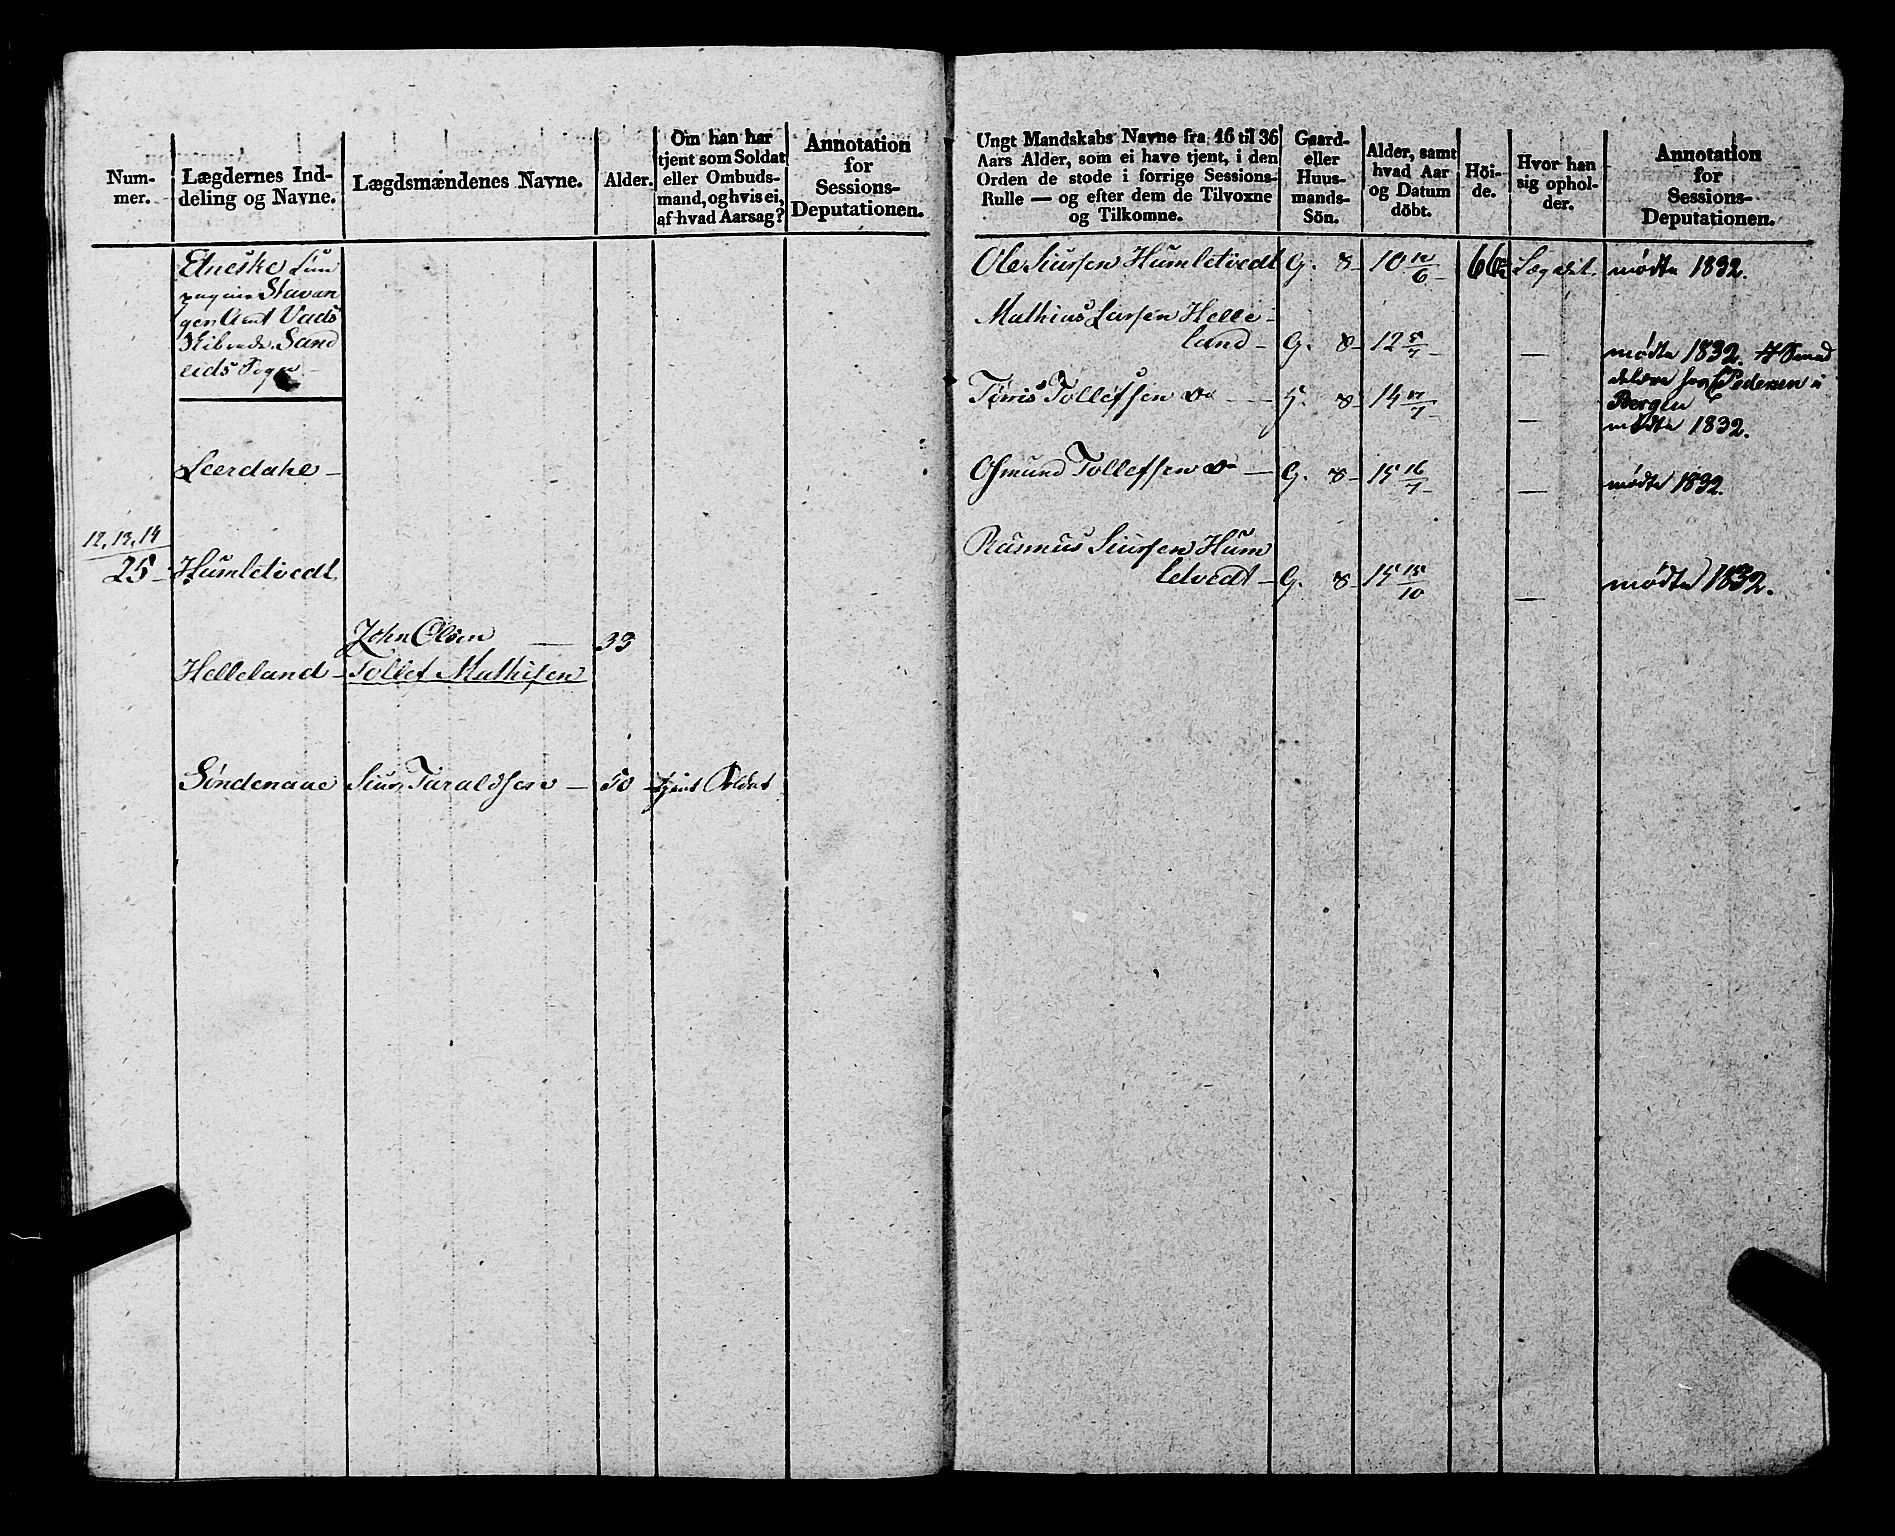 Num-
mer.
Lægdernes Ind-
deling og Navne.
Lægdsmændenes Navne.
Alder.
Om han har
tjent som Soldat
eller Ombuds-
mand, og hvis ei,
af hvad Aarsag?
Annotation
for
Sessions-
Deputationen.
Etneske Com
pagnie Stavan
ger Amt Vads
Skibrede Sand
eids Sogn
Leerdahl
12, 13, 14
25 Humletvedt
John Olsen 33
Helleland Tollef Mathisen
Søndenaae Siur Taraldsen 50 tjent Soldat
Ungt Mandskabs Navne fra 16 til 36
Aars Alder, som ei have tjent, i den
Orden de stode i forrige Sessions-
Rulle — og efter dem de Tilvoxne
og Tilkomne.
Gaard-
eller
Huus-
mands-
Sön.
Alder, samt
hvad Aar
og Datum
döbt.
Höi-
de.
Hvor han
sig ophol-
der.
Annotation
for
Sessions-
Deputationen.
Ole Siursen Humletvedt G. 8 10 12/6 Lægdet mødte 1832.
Mathias Larsen Helle-
land G. 8 12 5/7 — mødte 1832.
Tørris Tollefsen do G. 8 14 17/7 — Pedersen i
Bergen
mødte 1832.
Osmund Tollefsen do G. 8 15 16/7 — mødte 1832.
Rasmus Siursen Hum
letvedt G. 8 15 15/10 — mødte 1832.